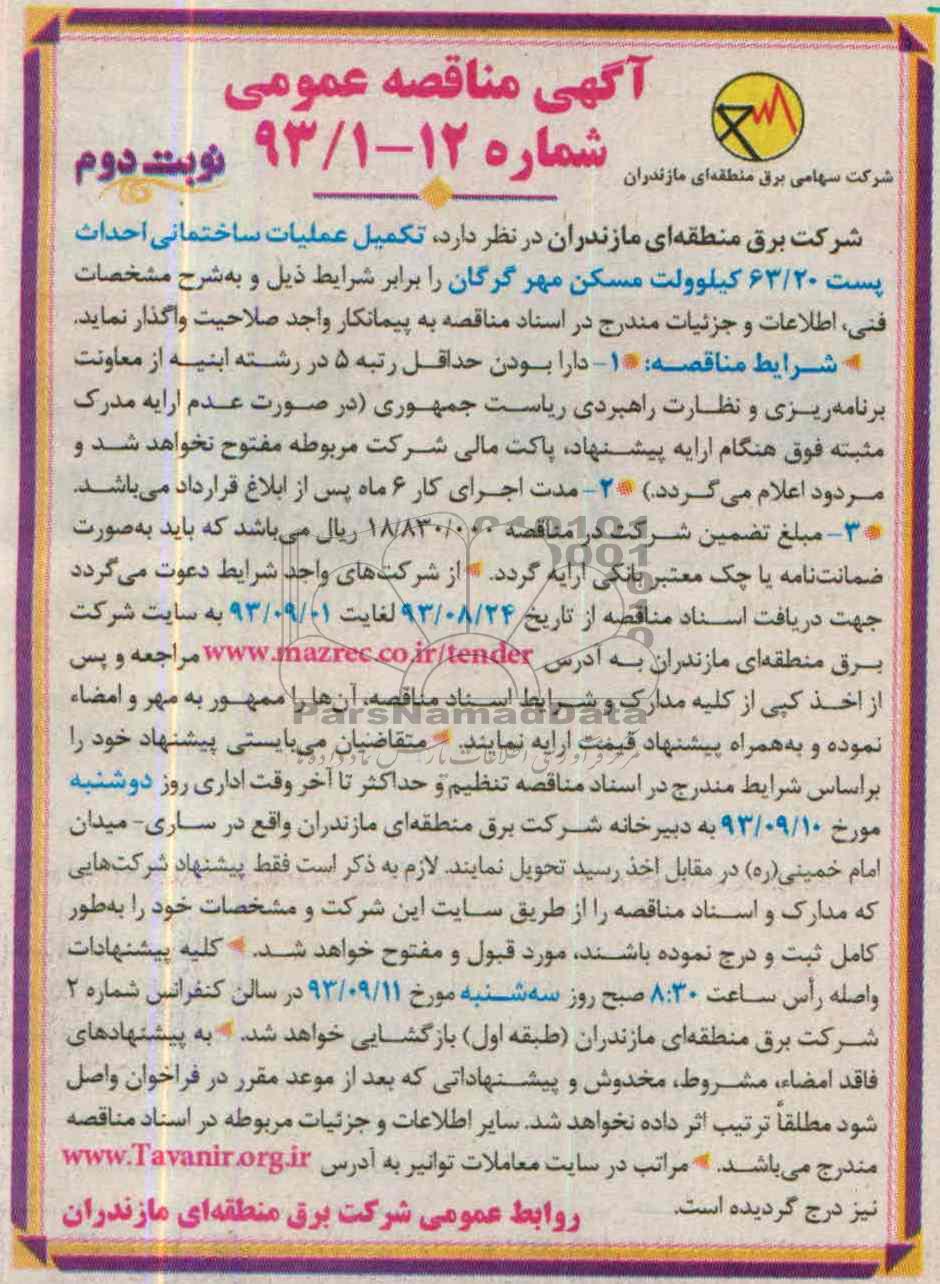 آگهی مناقصه عمومی
شماره ۱۲-۹۳/۱
نوبت دوم
شرکت سهامی برق منطقه‌ای مازندران
شرکت برق منطقه‌ای مازندران در نظر دارد، تکمیل عملیات ساختمانی احداث
پست ۶۳/۲۰ کیلوولت مسکن مهر گرگان را برابر شرایط ذیل و به‌شرح مشخصات
فنی، اطلاعات و جزئیات مندرج در اسناد مناقصه به پیمانکار واجد صلاحیت واگذار نماید.
شرایط مناقصه: ۱- دارا بودن حداقل رتبه ۵ در رشته ابنیه از معاونت
برنامه‌ریزی و نظارت راهبردی ریاست جمهوری (در صورت عدم ارایه مدرک
مثبته فوق هنگام ارایه پیشنهاد، پاکت مالی شرکت مربوطه مفتوح نخواهد شد و
مردود اعلام می‌گردد.) ۲- مدت اجرای کار ۶ ماه پس از ابلاغ قرارداد می‌باشد.
۳- مبلغ تضمین شرکت در مناقصه ۱۸/۸۳۰/۰۰۰ ریال می‌باشد که باید به‌صورت
ضمانت‌نامه یا چک معتبر بانکی ارایه گردد. از شرکت‌های واجد شرایط دعوت می‌گردد
جهت دریافت اسناد مناقصه از تاریخ ۹۳/۰۸/۲۴ لغایت ۹۳/۰۹/۰۱ به سایت شرکت
برق منطقه‌ای مازندران به آدرس www.mazrec.co.ir/tender مراجعه و پس
از اخذ کپی از کلیه مدارک و شرایط اسناد مناقصه، آن‌ها را ممهور به مهر و امضاء
ParsNamadData
نموده و به‌همراه پیشنهاد قیمت ارایه نمایند. متقاضیان می‌بایستی پیشنهاد خود را
براساس شرایط مندرج در اسناد مناقصه تنظیم و حداکثر تا آخر وقت اداری روز دوشنبه
مورخ ۹۳/۰۹/۱۰ به دبیرخانه شرکت برق منطقه‌ای مازندران واقع در ساری- میدان
امام خمینی(ره) در مقابل اخذ رسید تحویل نمایند. لازم به ذکر است فقط پیشنهاد شرکت‌هایی
که مدارک و اسناد مناقصه را از طریق سایت این شرکت و مشخصات خود را به‌طور
کامل ثبت و درج نموده باشند، مورد قبول و مفتوح خواهد شد. کلیه پیشنهادات
واصله رأس ساعت ۸:۳۰ صبح روز سه‌شنبه مورخ ۹۳/۰۹/۱۱ در سالن کنفرانس شماره ۲
شرکت برق منطقه‌ای مازندران (طبقه اول) بازگشایی خواهد شد. به پیشنهادهای
فاقد امضاء، مشروط، مخدوش و پیشنهاداتی که بعد از موعد مقرر در فراخوان واصل
شود مطلقاً ترتیب اثر داده نخواهد شد. سایر اطلاعات و جزئیات مربوطه در اسناد مناقصه
مندرج می‌باشد. مراتب در سایت معاملات توانیر به آدرس www.Tavanir.org.ir
نیز درج گردیده است.
روابط عمومی شرکت برق منطقه‌ای مازندران